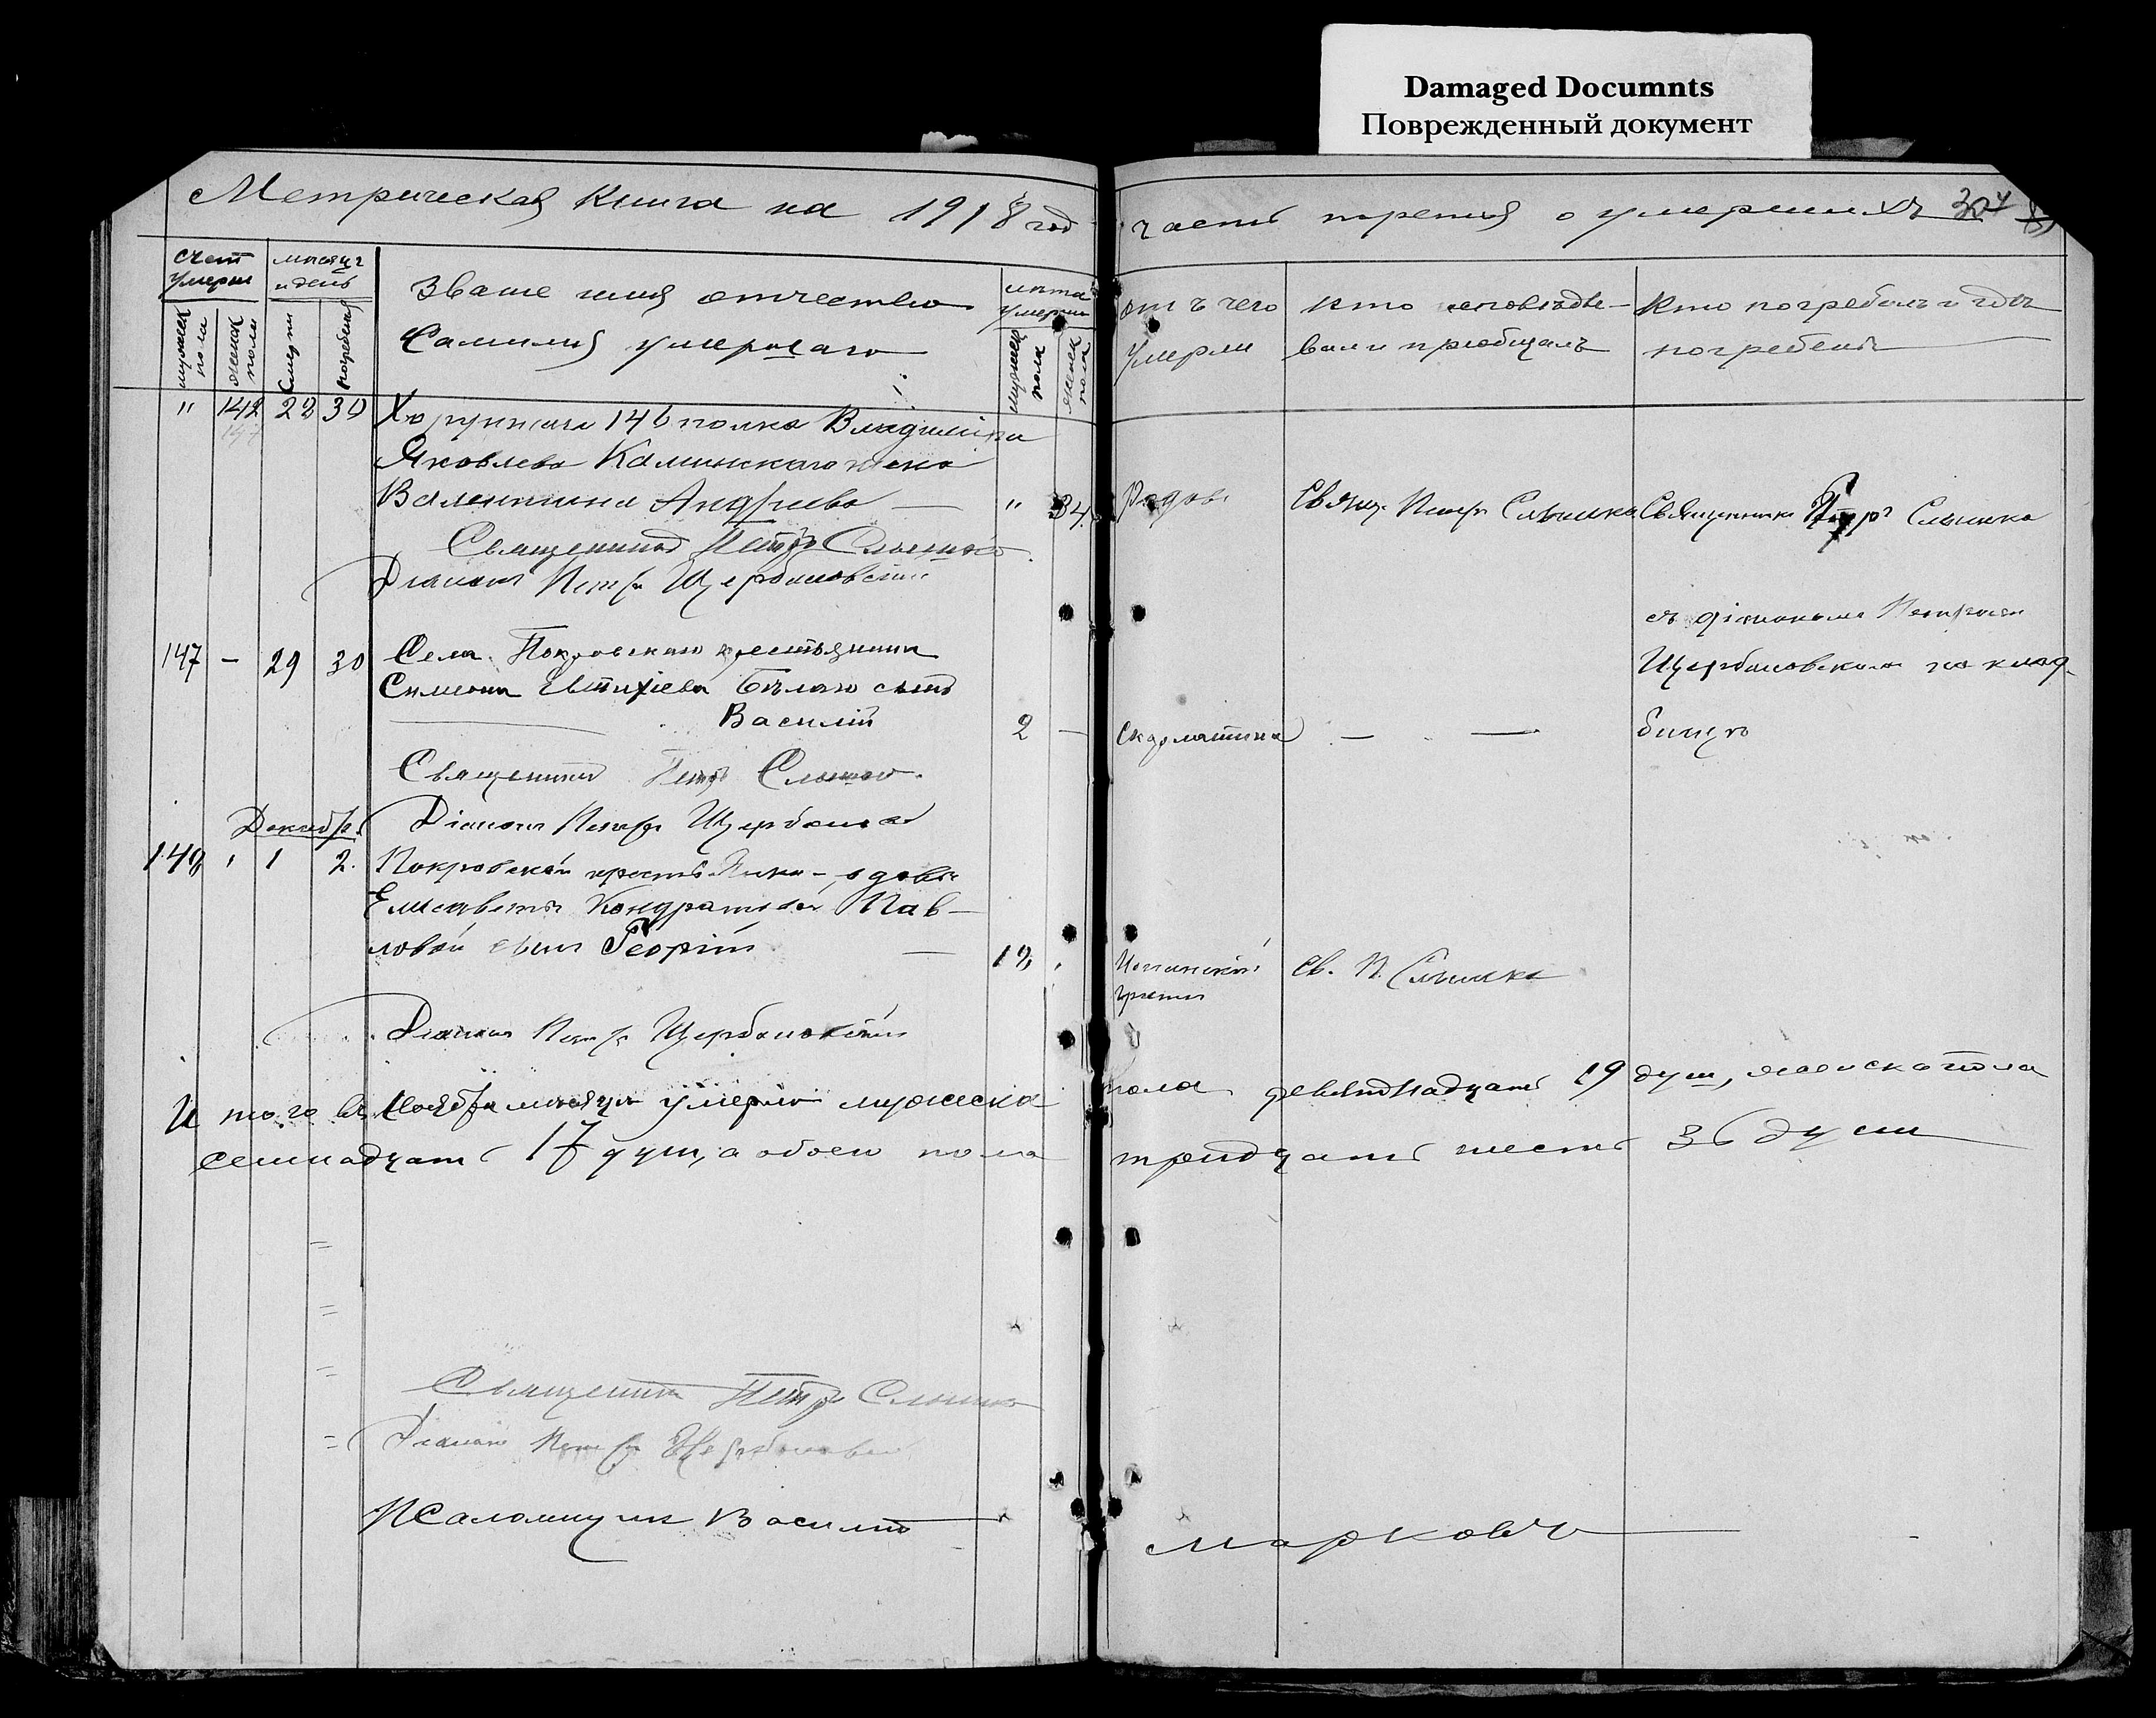 Damaged Documnts
Поврежденный документ
Метрическая Книга на 1918 год
часть третья о умерших
счет умерш
мужск пола
женск пола
месяц и день
смерти
погребения
Званіе имя отчество
Фамилія умершаго
лета умерш
мужеск пола
женск пола
отъ чего умерли
кто исповѣдывал и пріобщалъ
Кто погребалъ и гдѣ погребены
" 142 22 30 Хорунжаго 146 полка Владиміра
Яковлева Каминскаго жена
Валентина Андреева — " 34
Родовъ
Свящ. Петръ Слынко
Священникъ Петръ Слынко
Священник Петръ Слынко
Діаконъ Петръ Щербановскій
съ діакономъ Петромъ
Щербановским на клад-
бище
147 — 29 30 Села Покровскаго крестьянина
Симеона Евтихіева Бѣлаго сынъ
Василій 2 —
Скарлатина — —
Священник Петръ Слынко
Діаконъ Петръ Щербановс
Декабрь
148 " 1 2. Покровской крестьянки - вдовы
Елисаветы Кондратовой Пав-
ловой сынъ Георгій — 18
Испанской
грипп
Св. П. Слынко
Діаконъ Петръ Щербановскій
Итого въ Ноябрѣ месяце умерло мужска
пола девятнадцать 19 душ, женска пола
семнадцать 17 душ, а обоего пола
тридцать шесть 36 душ
Священник Петръ Слынко
Діаконъ Петръ Щербановскій
Псаломщик Василій
Марковъ